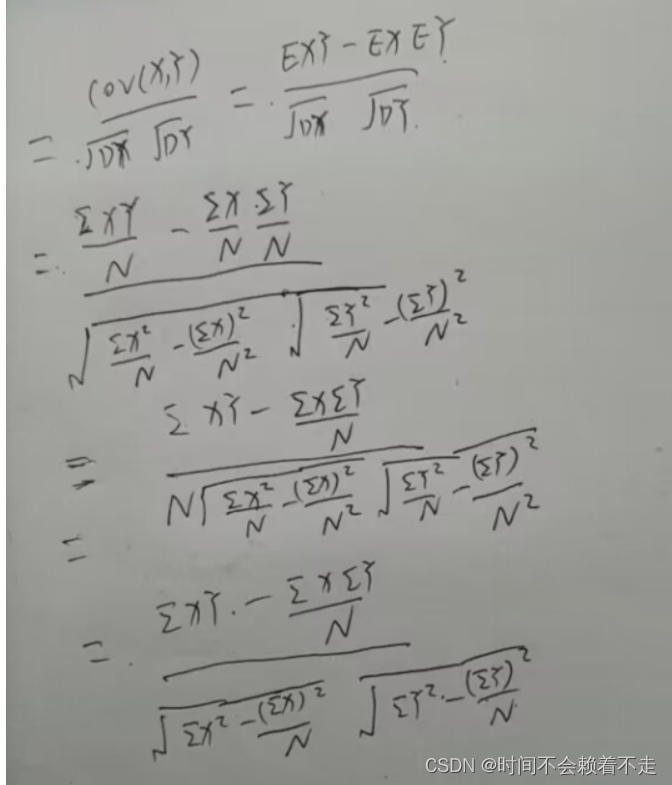 = Cov(X,Y) / √DX √DY = EXY - EX EY / √DX √DY
= (ΣXY/N - ΣX/N · ΣY/N) / (√(ΣX²/N - (ΣX)²/N²) · √(ΣY²/N - (ΣY)²/N²))
= (ΣXY - ΣXΣY/N) / (N√(ΣX²/N - (ΣX)²/N²) √(ΣY²/N - (ΣY)²/N²))
=
= (ΣXY - ΣXΣY/N) / (√(ΣX² - (ΣX)²/N) √(ΣY² - (ΣY)²/N))
CSDN @时间不会赖着不走